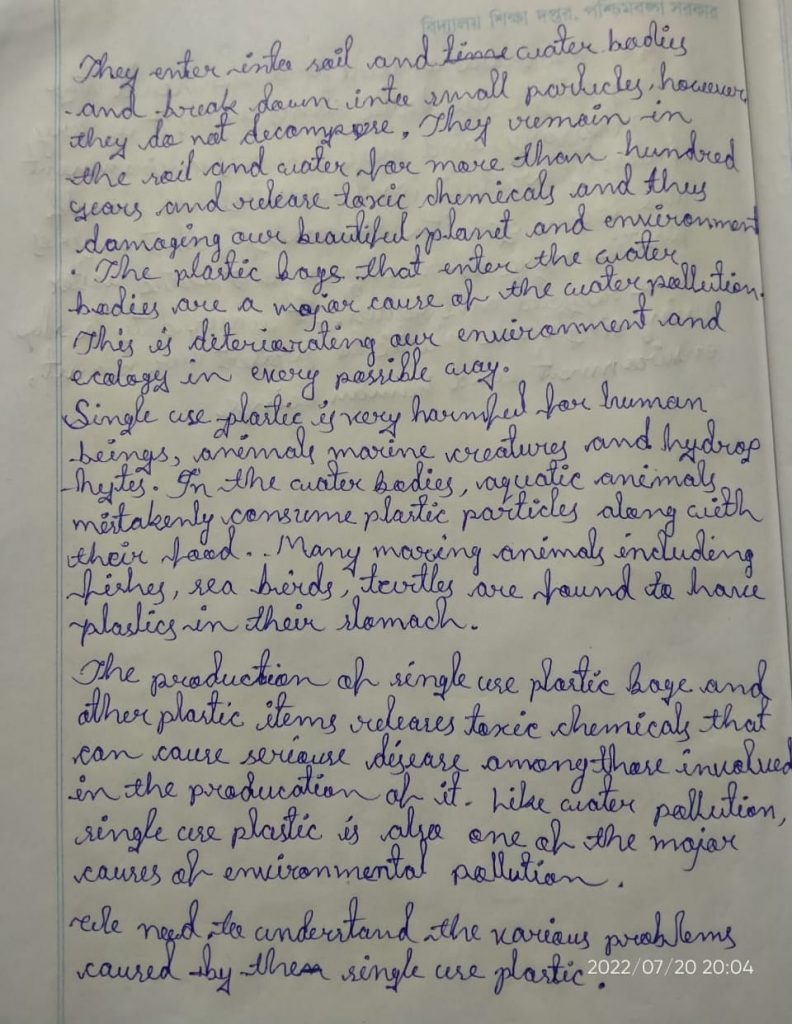 বিদ্যালয় শিক্ষা দপ্তর, পশ্চিমবঙ্গ সরকার
They enter into soil and water bodies
and break down into small particles, however,
they do not decompose. They remain in
the soil and water for more than hundred
years and release toxic chemicals and thus
damaging our beautiful planet and environment
. The plastic bags that enter the water
bodies are a major cause of the water pollution.
This is deteriorating our environment and
ecology in every possible way.
Single use plastic is very harmful for human
beings, animals marine creatures and hydrop
hytes. In the water bodies, aquatic animals
mistakenly consume plastic particles along with
their food.. Many marine animals including
fishes, sea birds, turtles are found to have
plastics in their stomach.
The production of single use plastic bags and
other plastic items releases toxic chemicals that
can cause seriouse disease among those involved
in the producation of it. Like water pollution,
single use plastic is also one of the major
causes of environmental pollution.
We need to understand the various problems
caused by the single use plastic.
2022/07/20 20:04